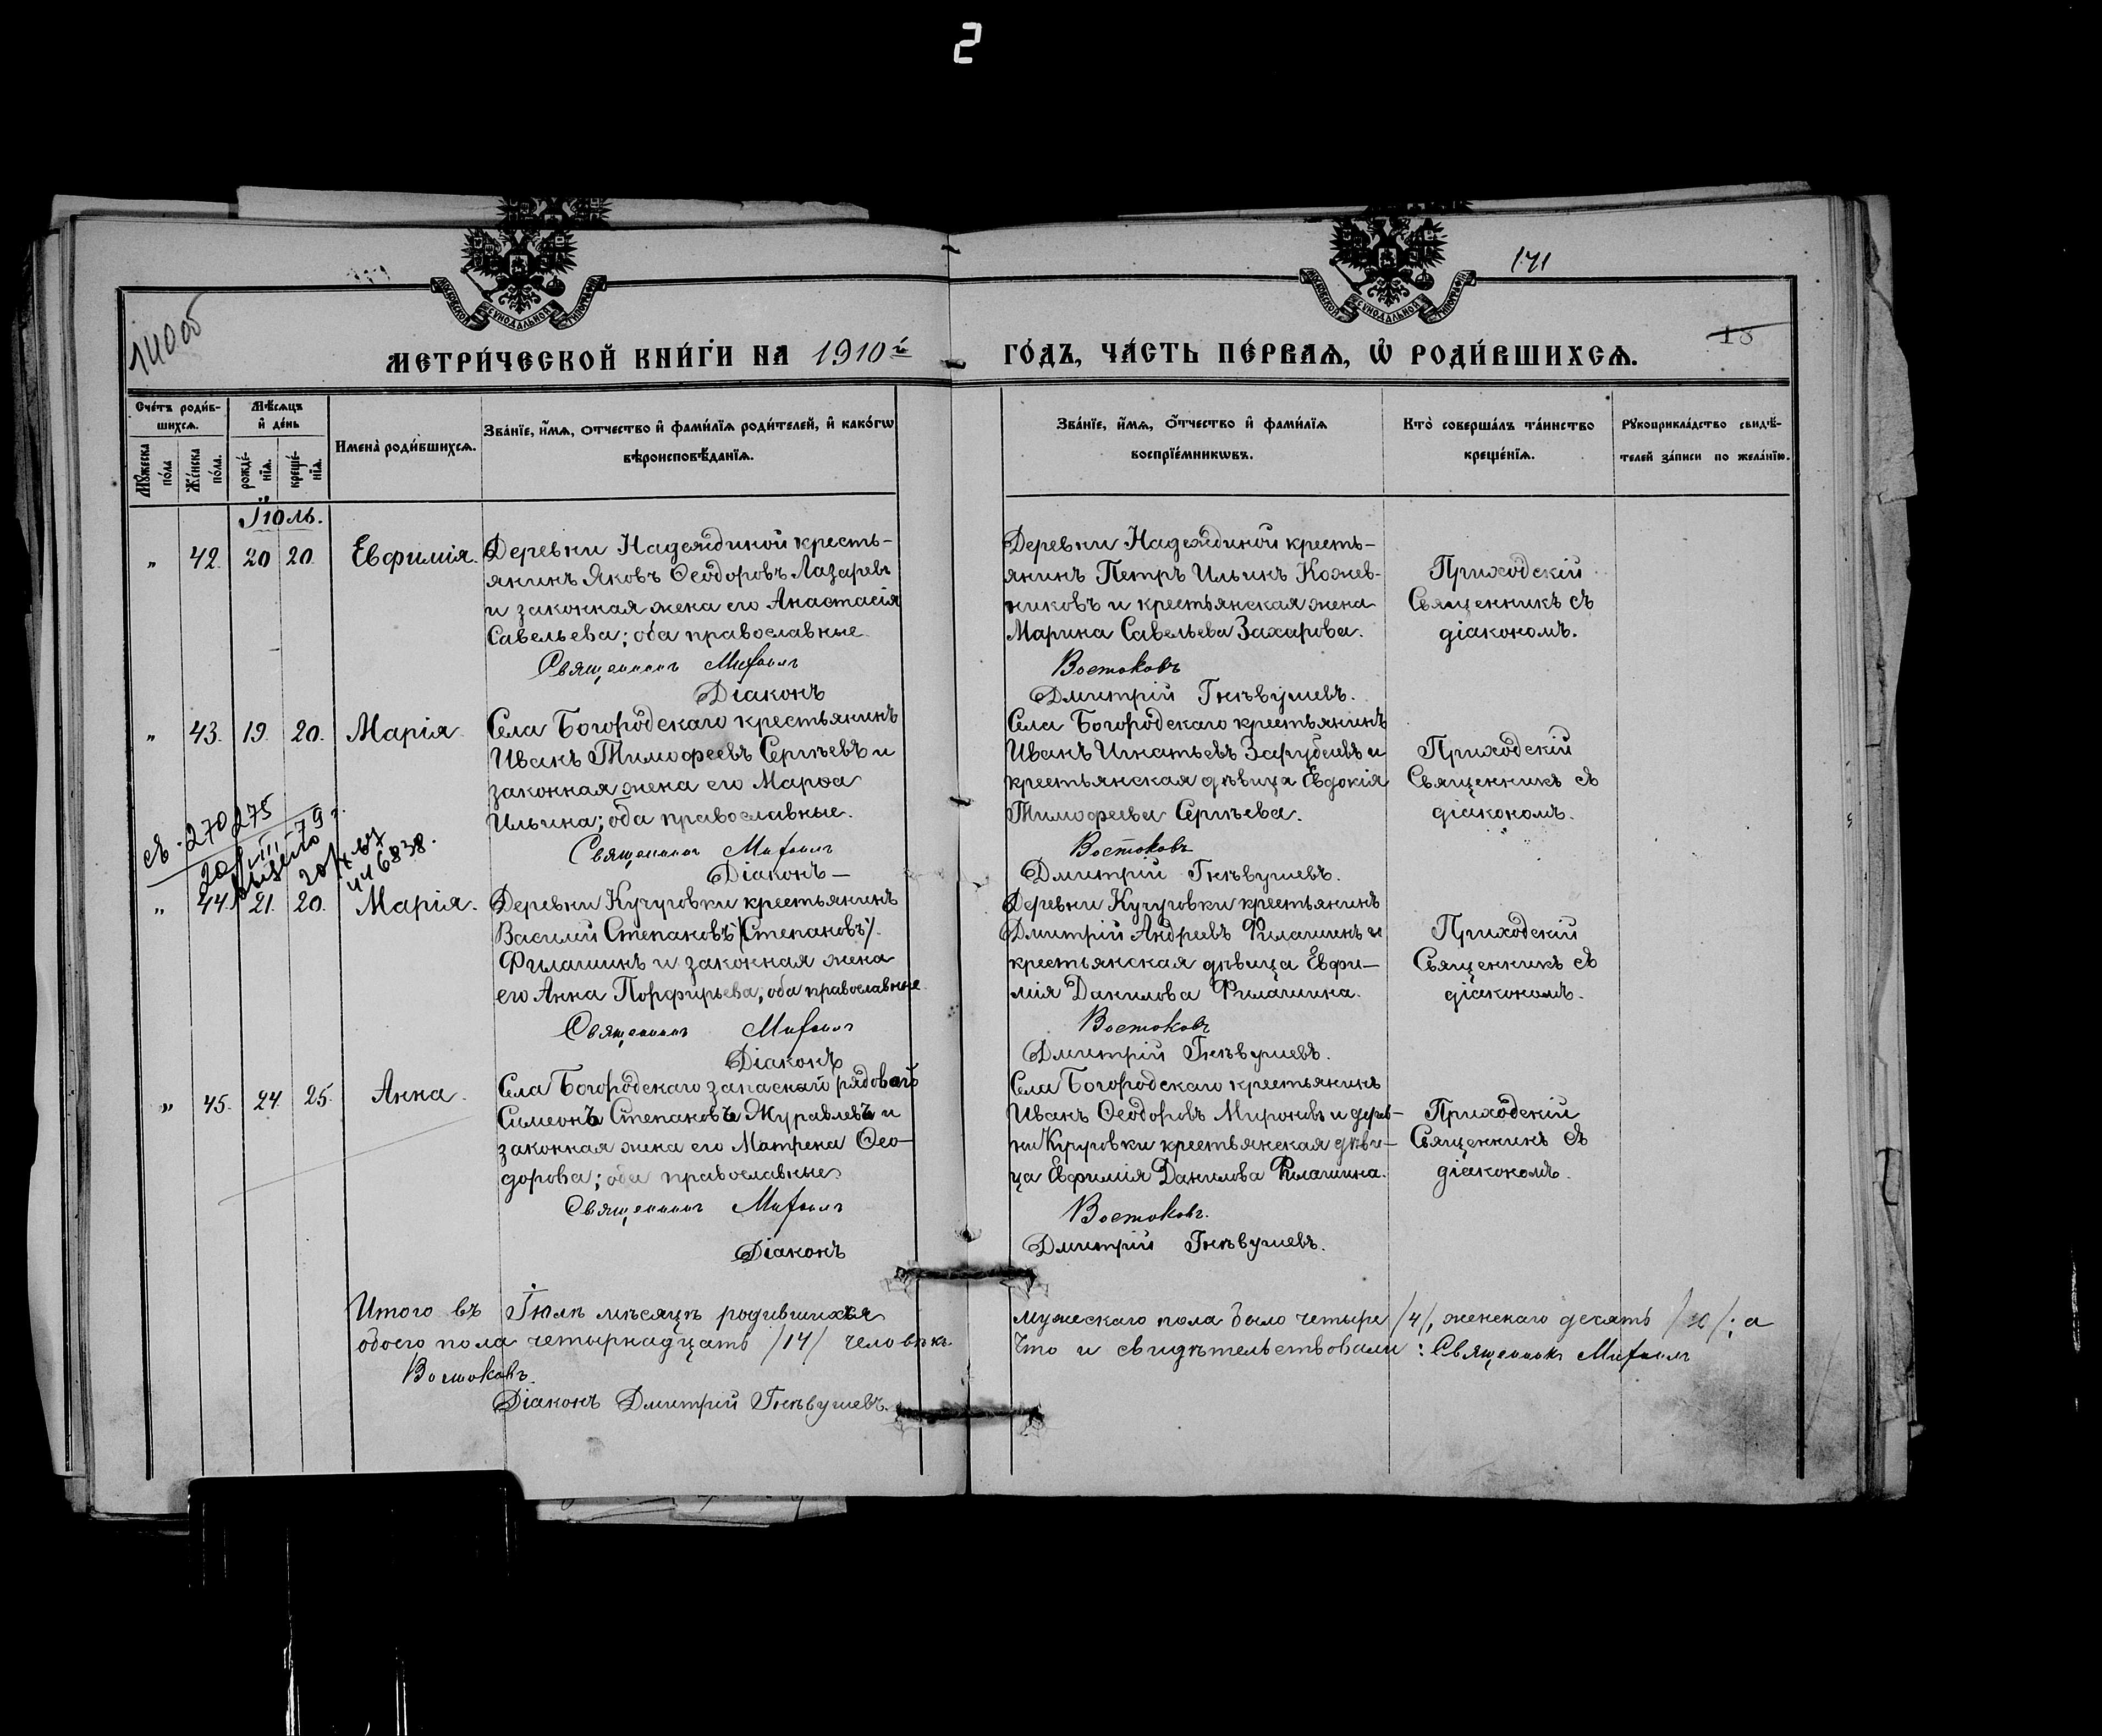 2
МОСКОВСКОЙ СѴНОДАЛЬНОЙ ТИПОГРАФІИ
МОСКОВСКОЙ СѴНОДАЛЬНОЙ ТИПОГРАФІИ
171
15
МЕТРИ́ЧЕСКОЙ КНИ́ГИ НА 1910й
ГО́ДЪ, ЧА́СТЬ ПЕ́РВАѦ, Ѡ РОДИ́ВШИХСѦ.
Сче́тъ роди́в-
шихсѧ.
Мѣ́сѧцъ
и де́нь
Мꙋ́жеска
по́ла
Же́нска
по́ла.
рожде́-
нїѧ.
креще́-
нїѧ.
Имена̀ роди́вшихсѧ.
Зва́нїе, и́мѧ, ѻ́тчество и фами́лїѧ роди́телей, и како́гѡ
вѣроисповѣ́данїѧ.
Зва́нїе, и́мѧ, ѻ́тчество и фами́лїѧ
воспрїе́мникѡвъ.
Кто̀ соверша́лъ та́инство
креще́нїѧ.
Рꙋкоприкла́дство свидѣ́-
телей за́писи по жела́нїю.
Іюль.
" 42. 20 20. Евфимія.
Деревни Надеждиной кресть-
янинъ Яковъ Ѳеодоровъ Лазаревъ
и законная жена его Анастасія
Савельева; оба православные.
Священникъ Михаилъ
Діаконъ
Деревни Надеждиной кресть-
янинъ Петръ Ильинъ Кожев-
никовъ и крестьянская жена
Марина Савельева Захарова.
Востоковъ
Дмитрій Гнѣвушевъ.
Приходскій
Священникъ съ
діакономъ.
" 43. 19. 20. Марія.
Села Богородскаго крестьянинъ
Иванъ Тимофеевъ Сергѣевъ и
законная жена его Марѳа
Ильина; оба православные.
Священникъ Михаилъ
Діаконъ —
Села Богородскаго крестьянинъ
Иванъ Игнатьевъ Зарубаевъ и
крестьянская дѣвица Евдокія
Тимофеева Сергѣева.
Востоковъ
Дмитрій Гнѣвушевъ.
Приходскій
Священникъ съ
діакономъ.
" 44. 21. 20. Марія.
Деревни Кучуговки крестьянинъ
Василій Степановъ /Степановъ/.
Филашинъ и законная жена
его Анна Порфирьева; оба православные.
Священникъ Михаилъ
Діаконъ
Деревни Кучуговки крестьянинъ
Дмитрій Андреевъ Филашинъ и
крестьянская дѣвица Евфи-
мія Данилова Филашина.
Востоковъ
Дмитрій Гнѣвушевъ.
Приходскій
Священникъ съ
діакономъ.
" 45. 24. 25. Анна.
Села Богородскаго запасный рядовой
Симеонъ Степановъ Журавлевъ и
законная жена его Матрена Ѳео-
дорова; оба православные.
Священникъ Михаилъ
Діаконъ
Села Богородскаго крестьянинъ
Иванъ Ѳеодоровъ Мироновъ и дерев-
ни Кучуговки крестьянская дѣви-
ца Евфимія Данилова Филашина.
Востоковъ.
Дмитрій Гнѣвушевъ.
Приходскій
Священникъ съ
діакономъ.
Итого въ Іюлѣ мѣсяцѣ родившихся
обоего пола четырнадцать /14/ человѣкъ.
Востоковъ.
Діаконъ Дмитрій Гнѣвушевъ.
мужескаго пола было четыре /4/, женскаго десять /10/; а
Что и свидѣтельствовали: Священникъ Михаилъ